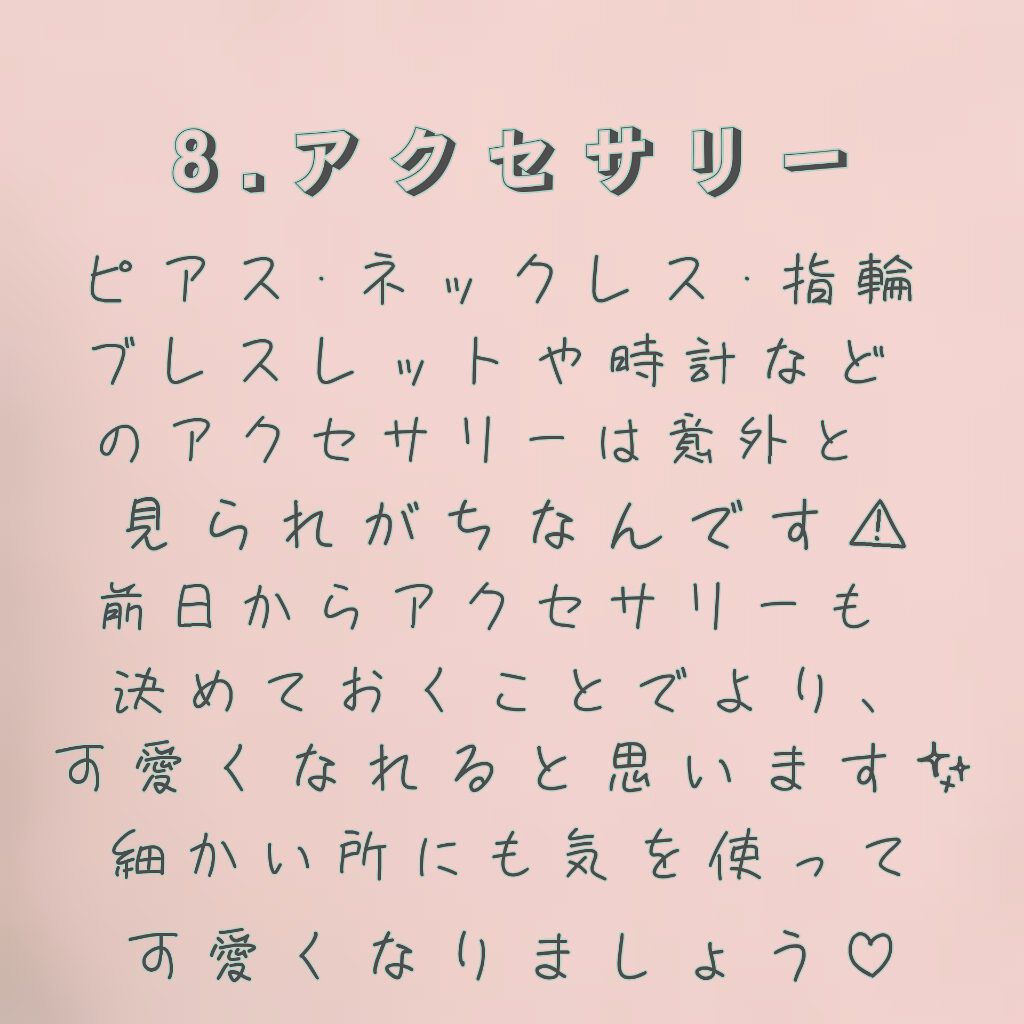 8.アクセサリー
ピアス・ネックレス・指輪
ブレスレットや時計など
のアクセサリーは意外と
見られがちなんです⚠
前日からアクセサリーも
決めておくことでより、
可愛くなれると思います✨
細かい所にも気を使って
可愛くなりましょう♡